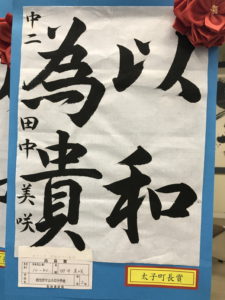 以和
為貴
中二 田中美咲
太子町長賞